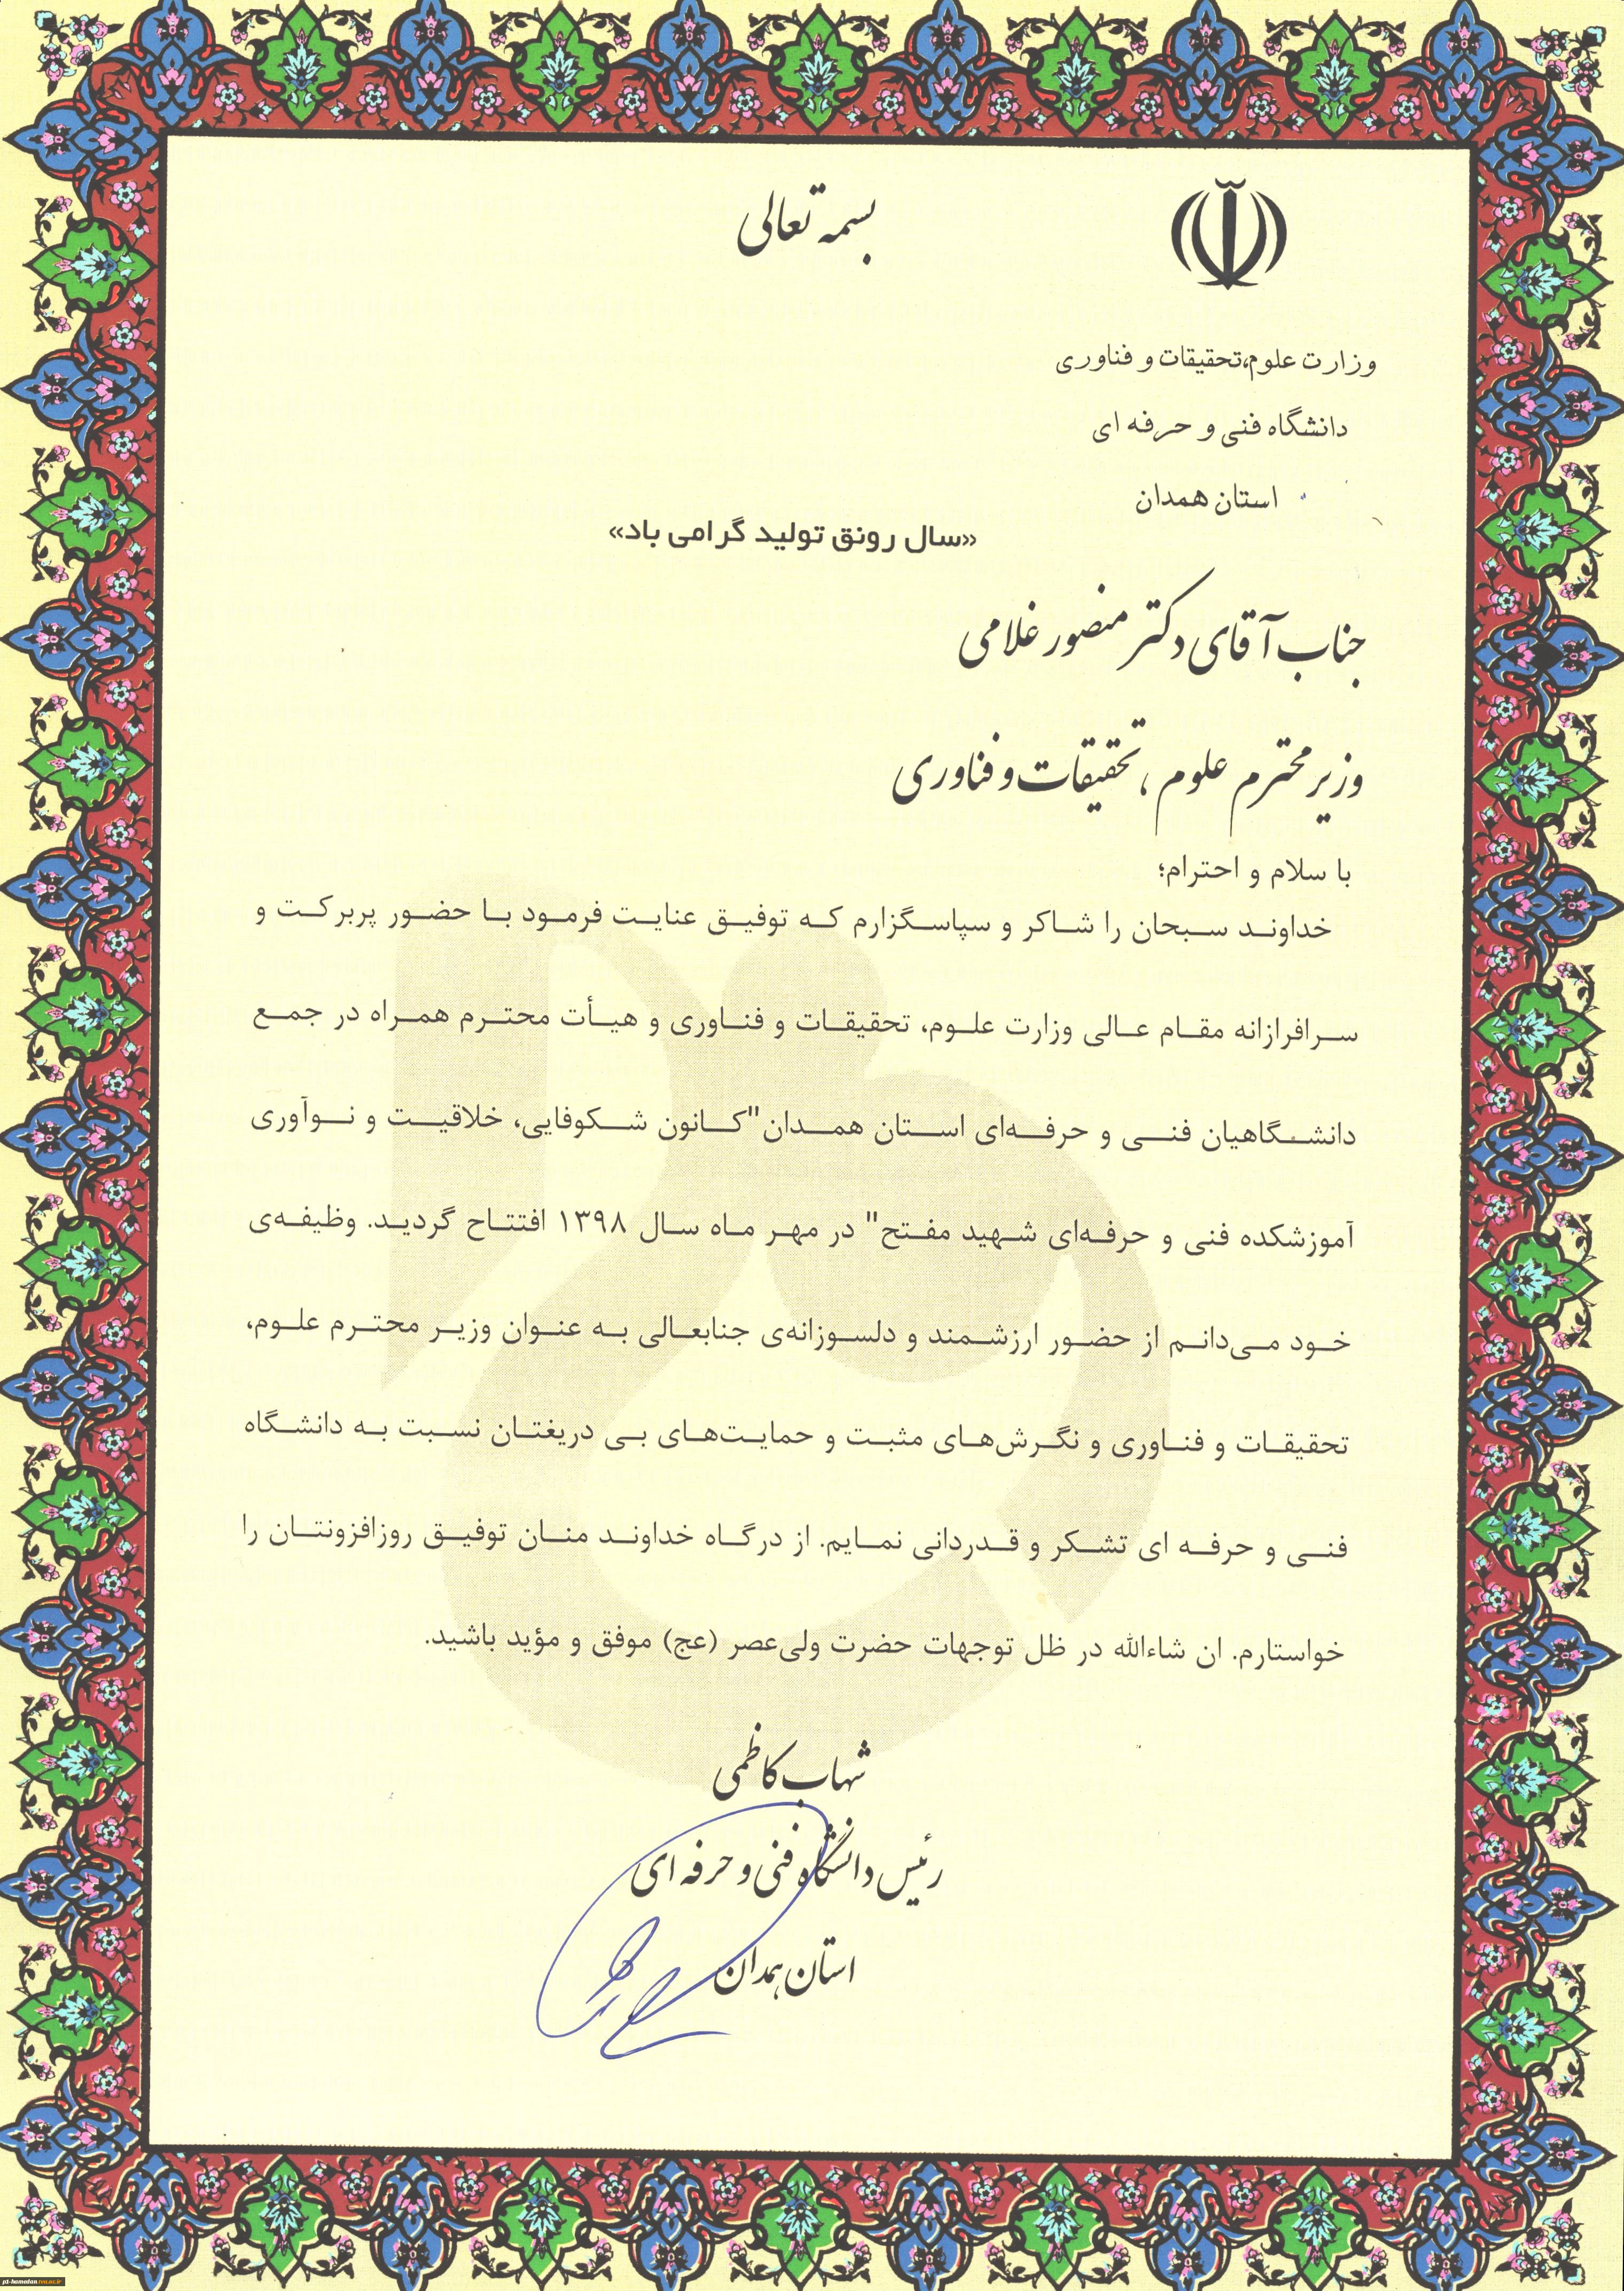 بسمه تعالی
وزارت علوم،تحقیقات و فناوری
دانشگاه فنی و حرفه ای
استان همدان
«سال رونق تولید گرامی باد»
جناب آقای دکتر منصور غلامی
وزیر محترم علوم ، تحقیقات و فناوری
با سلام و احترام؛
خداوند سبحان را شاکر و سپاسگزارم که توفیق عنایت فرمود با حضور پربرکت و
سرافرازانه مقام عالی وزارت علوم، تحقیقات و فناوری و هیأت محترم همراه در جمع
دانشگاهیان فنی و حرفه‌ای استان همدان "کانون شکوفایی، خلاقیت و نوآوری
آموزشکده فنی و حرفه‌ای شهید مفتح" در مهر ماه سال ۱۳۹۸ افتتاح گردید. وظیفه‌ی
خود می‌دانم از حضور ارزشمند و دلسوزانه‌ی جنابعالی به عنوان وزیر محترم علوم،
تحقیقات و فناوری و نگرش‌های مثبت و حمایت‌های بی دریغتان نسبت به دانشگاه
فنی و حرفه ای تشکر و قدردانی نمایم. از درگاه خداوند منان توفیق روزافزونتان را
خواستارم. ان شاءالله در ظل توجهات حضرت ولی‌عصر (عج) موفق و مؤید باشید.
شهاب کاظمی
رئیس دانشگاه فنی و حرفه ای
استان همدان
p1-hamedan.tvu.ac.ir